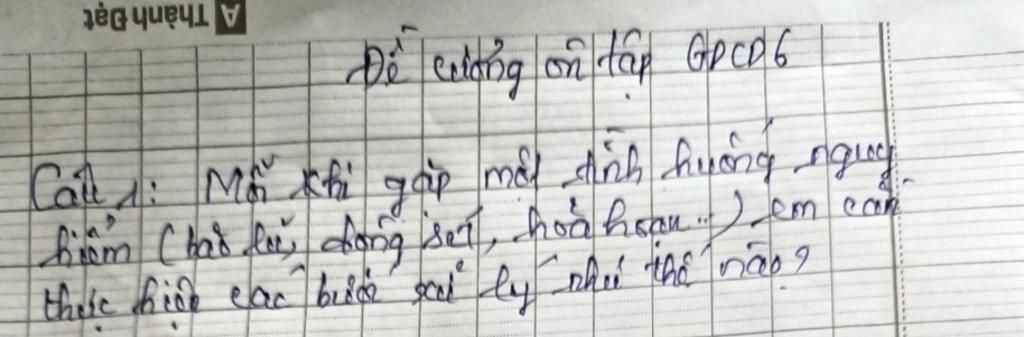 A Thành Đạt
Đề cương ôn tập GDCD6
Câu 1: Mỗi khi gặp một tình huống nguy
hiểm (bão lũ, dông sét, hoả hoạn...) em cần
thực hiện các bước xử lý như thế nào?